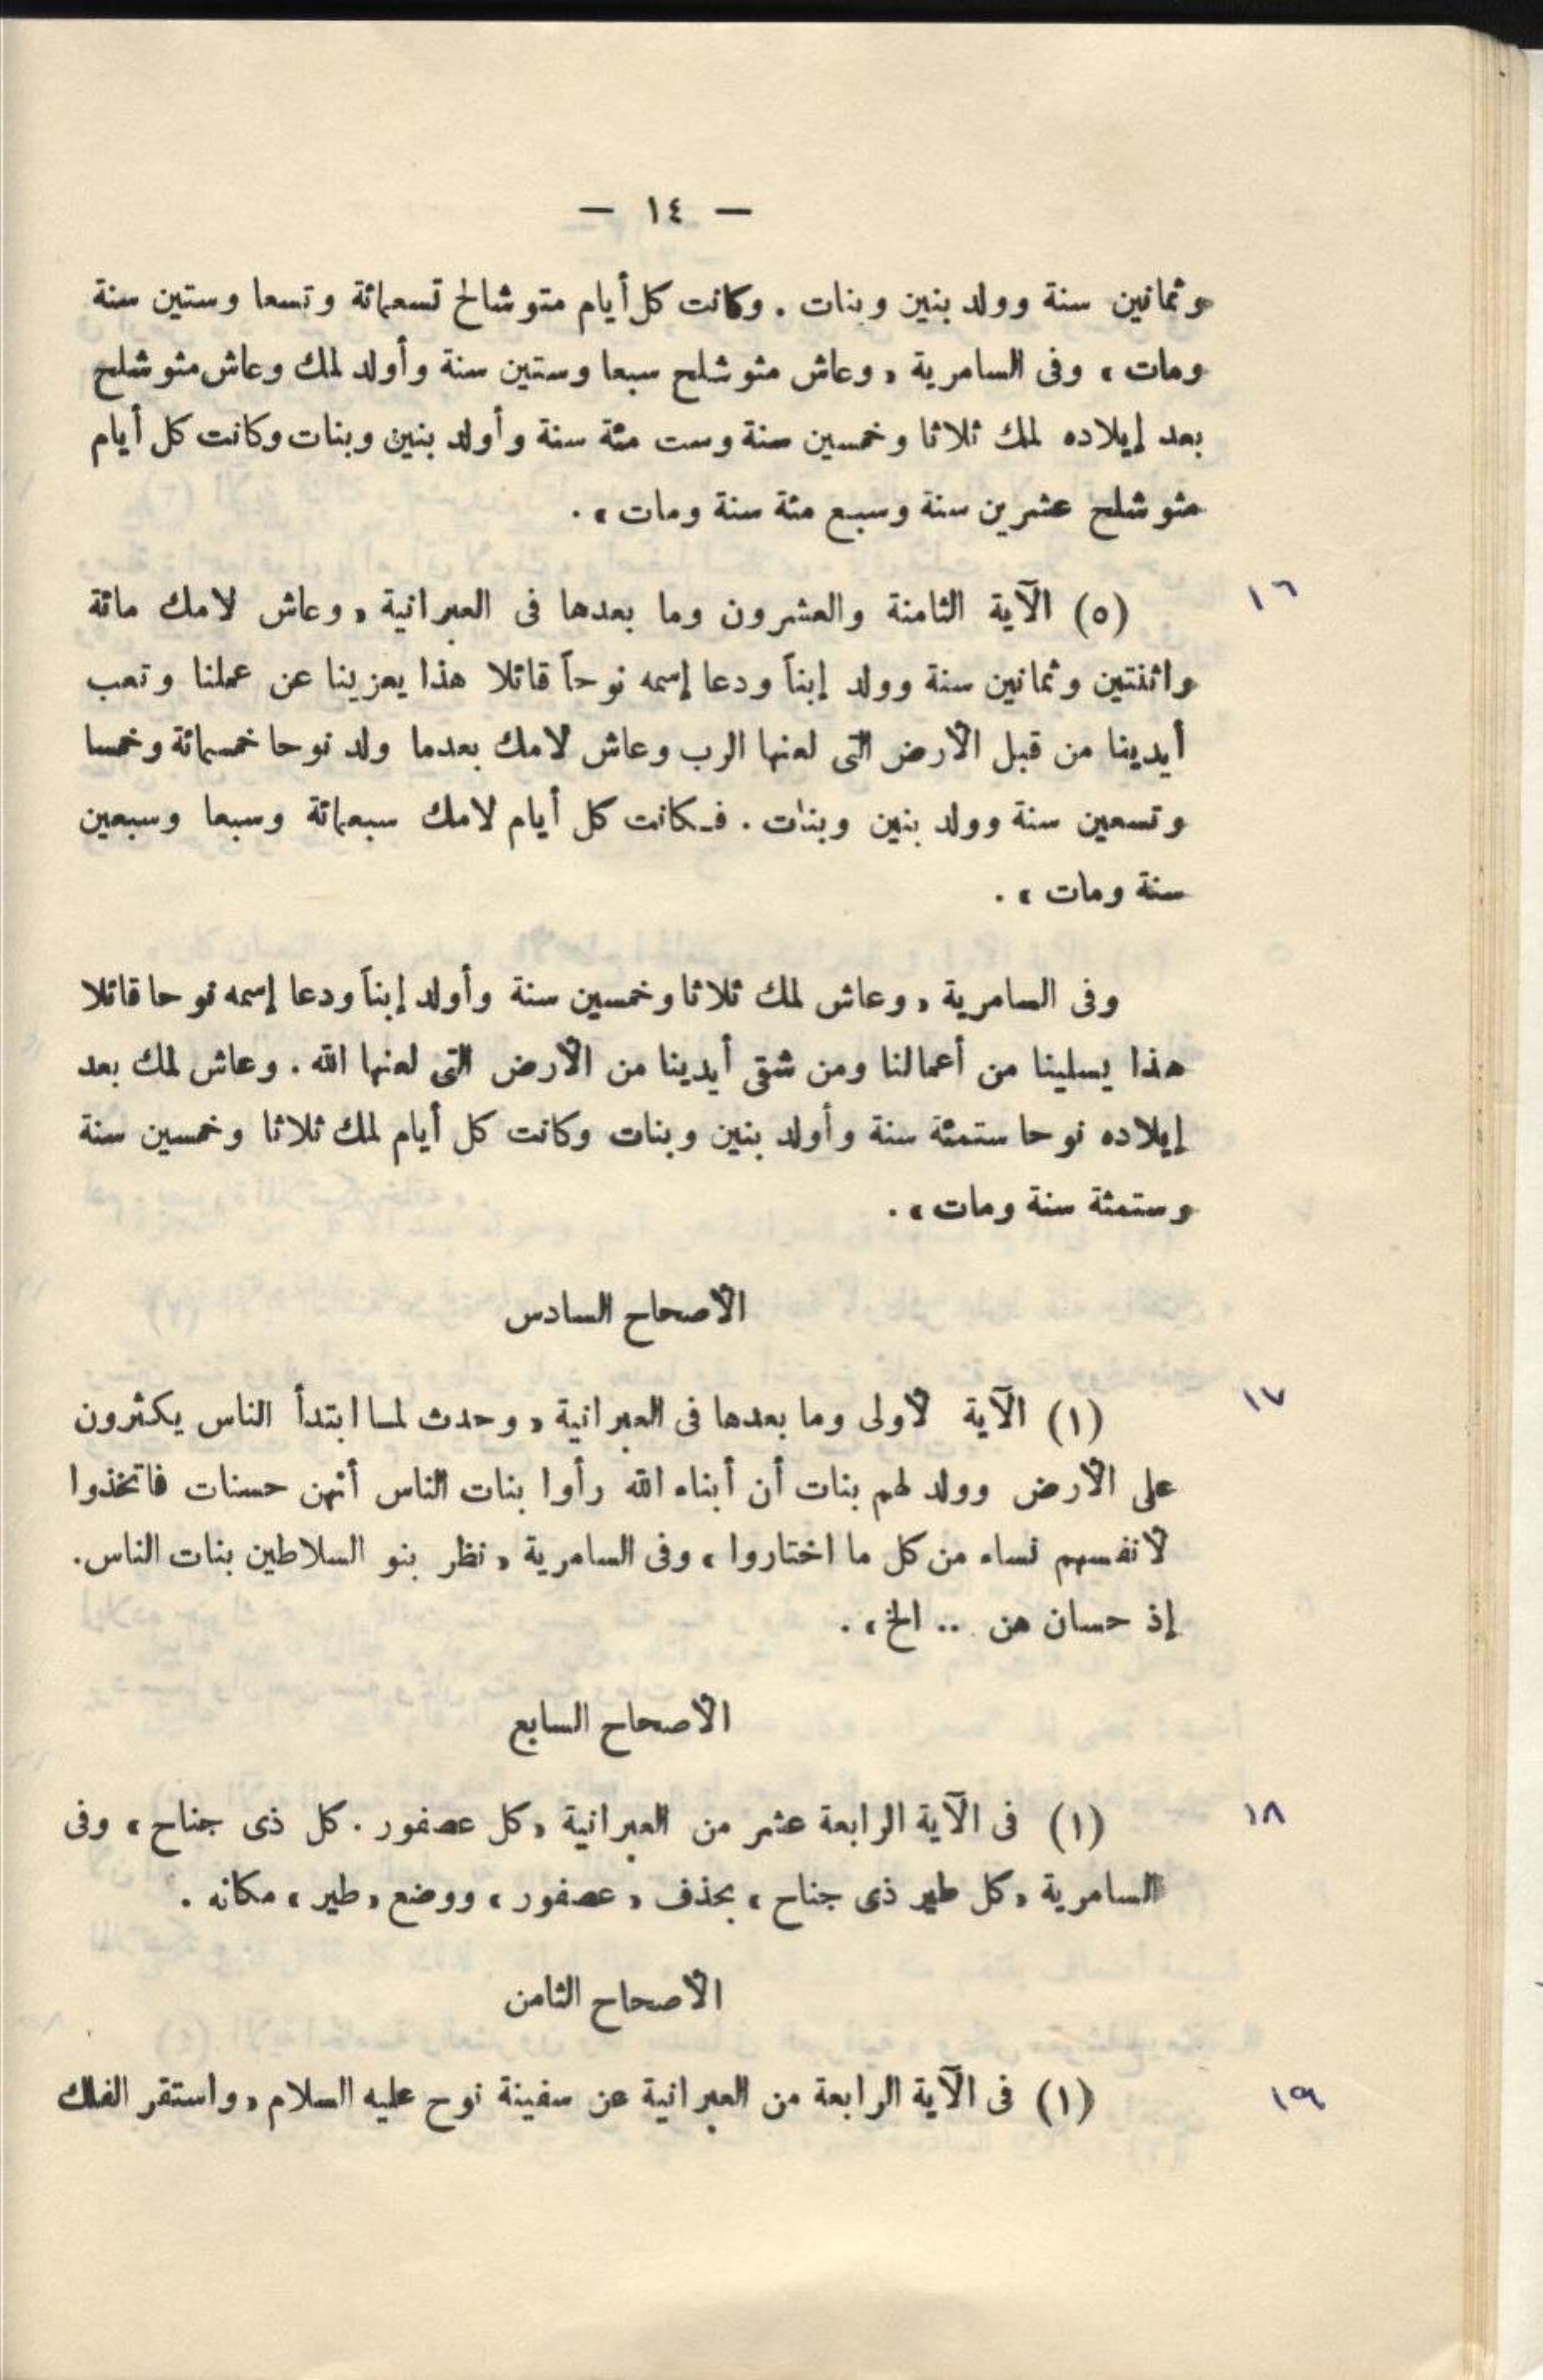 — ١٤ —
وثمانين سنة وولد بنين وبنات . وكانت كل أيام متوشالح تسعمائة وتسعا وستين سنة
ومات ، وفى السامرية « وعاش متوشلح سبعا وستين سنة وأولد لمك وعاش متوشلح
بعد إيلاده لمك ثلاثا وخمسين سنة وست مئة سنة وأولد بنين وبنات وكانت كل أيام
متوشلح عشرين سنة وسبع مئة سنة ومات » .
١٦
(٥) الآية الثامنة والعشرون وما بعدها فى العبرانية « وعاش لامك مائة
واثنتين وثمانين سنة وولد إبناً ودعا إسمه نوحاً قائلا هذا يعزينا عن عملنا وتعب
أيدينا من قبل الأرض التى لعنها الرب وعاش لامك بعدما ولد نوحا خمسمائة وخمسا
وتسعين سنة وولد بنين وبنات . فكانت كل أيام لامك سبعمائة وسبعا وسبعين
سنة ومات » .
وفى السامرية « وعاش لمك ثلاثا وخمسين سنة وأولد إبناً ودعا إسمه نوحا قائلا
هذا يسلينا من أعمالنا ومن شقى أيدينا من الأرض التى لعنها الله . وعاش لمك بعد
إيلاده نوحا ستمئة سنة وأولد بنين وبنات وكانت كل أيام لمك ثلاثا وخمسين سنة
وستمئة سنة ومات » .
الأصحاح السادس
١٧
(١) الآية لأولى وما بعدها فى العبرانية « وحدث لما ابتدأ الناس يكثرون
على الأرض وولد لهم بنات أن أبناء الله رأوا بنات الناس أنهن حسنات فاتخذوا
لأنفسهم نساء من كل ما اختاروا » وفى السامرية « نظر بنو السلاطين بنات الناس.
إذ حسان هن .. الخ » .
الأصحاح السابع
١٨
(١) فى الآية الرابعة عشر من العبرانية « كل عصفور . كل ذى جناح » وفى
السامرية « كل طير ذى جناح » بحذف « عصفور » ووضع « طير » مكانه .
الأصحاح الثامن
١٩
(١) فى الآية الرابعة من العبرانية عن سفينة نوح عليه السلام « واستقر الفلك